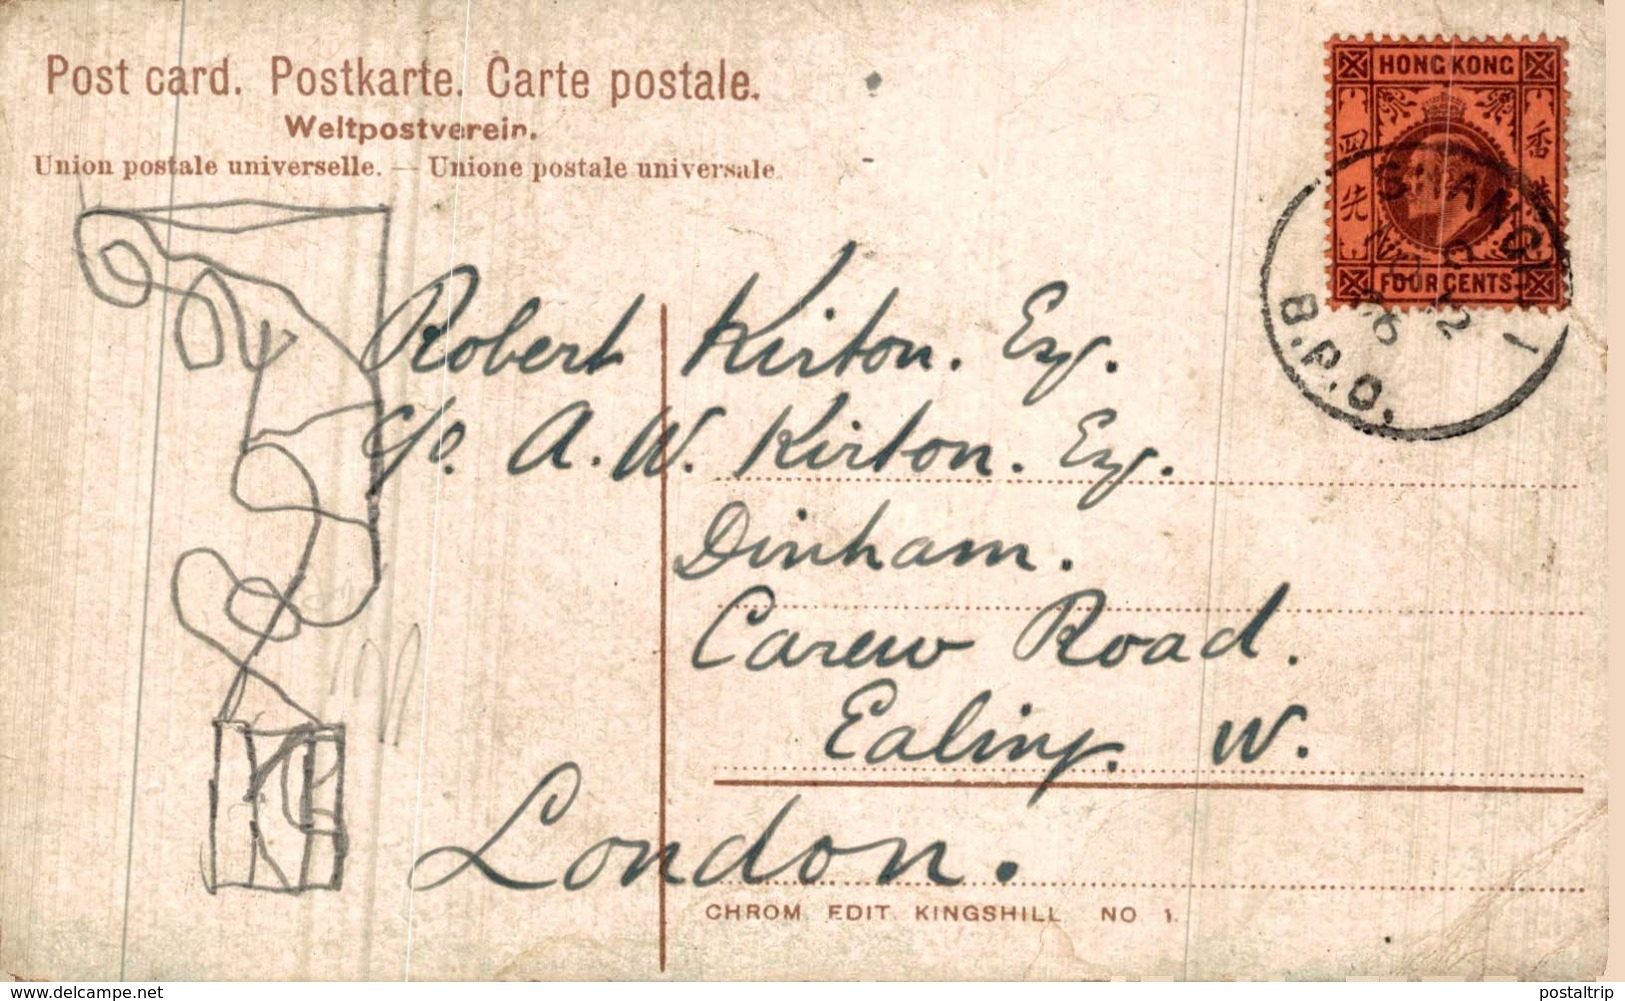 Post card. Postkarte. Carte postale.
Weltpostverein.
Union postale universelle. — Unione postale universale.
HONG KONG
香港
四先
FOUR CENTS
SHANGHAI
B.P.O.
Robert Kirton. Esq.
c/o. A. W. Kirton. Esq.
Dinham.
Carew Road.
Ealing. W.
London.
CHROM. EDIT KINGSHILL NO 1.
www.delcampe.net
postaltrip